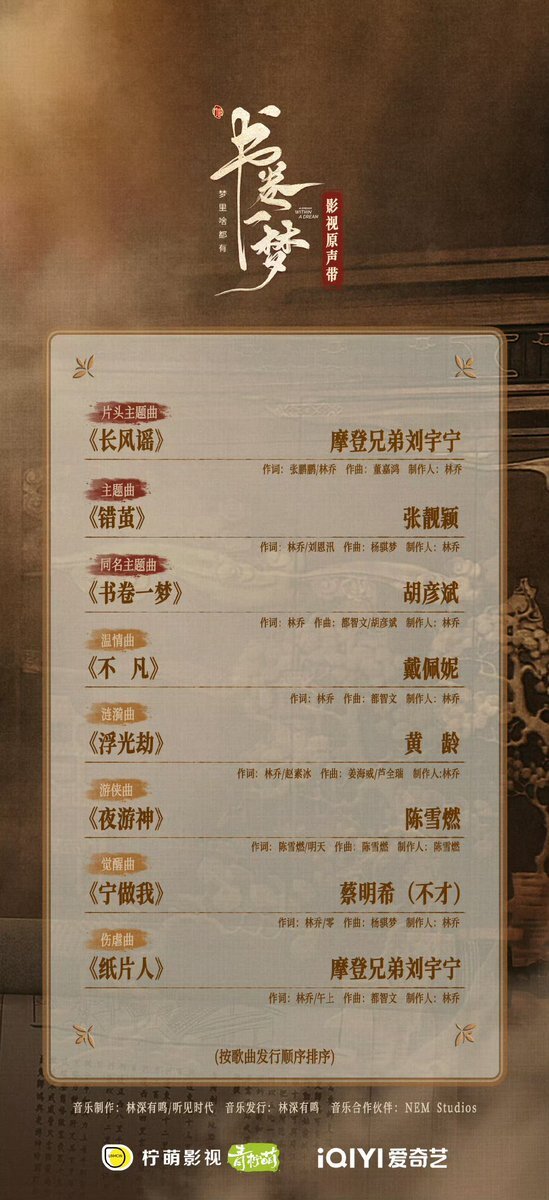 书卷一梦
梦里啥都有
A DREAM
WITHIN
A DREAM
影视原声带
片头主题曲
《长风谣》 摩登兄弟刘宇宁
作词：张鹏鹏/林乔 作曲：董嘉鸿 制作人：林乔
主题曲
《错茧》 张靓颖
作词：林乔/刘恩汛 作曲：杨骐梦 制作人：林乔
同名主题曲
《书卷一梦》 胡彦斌
作词：林乔 作曲：都智文/胡彦斌 制作人：林乔
温情曲
《不 凡》 戴佩妮
作词：林乔 作曲：都智文 制作人：林乔
涟漪曲
《浮光劫》 黄 龄
作词：林乔/赵素冰 作曲：姜海威/芦全瑞 制作人:林乔
游侠曲
《夜游神》 陈雪燃
作词：陈雪燃/明天 作曲：陈雪燃 制作人：陈雪燃
觉醒曲
《宁做我》 蔡明希（不才）
作词：林乔/零 作曲：杨骐梦 制作人：林乔
伤虐曲
《纸片人》 摩登兄弟刘宇宁
作词：林乔/午上 作曲：都智文 制作人：林乔
(按歌曲发行顺序排序)
音乐制作：林深有鸣/听见时代 音乐发行：林深有鸣 音乐合作伙伴：NEM Studios
柠萌影视 青柠萌 iQIYI爱奇艺